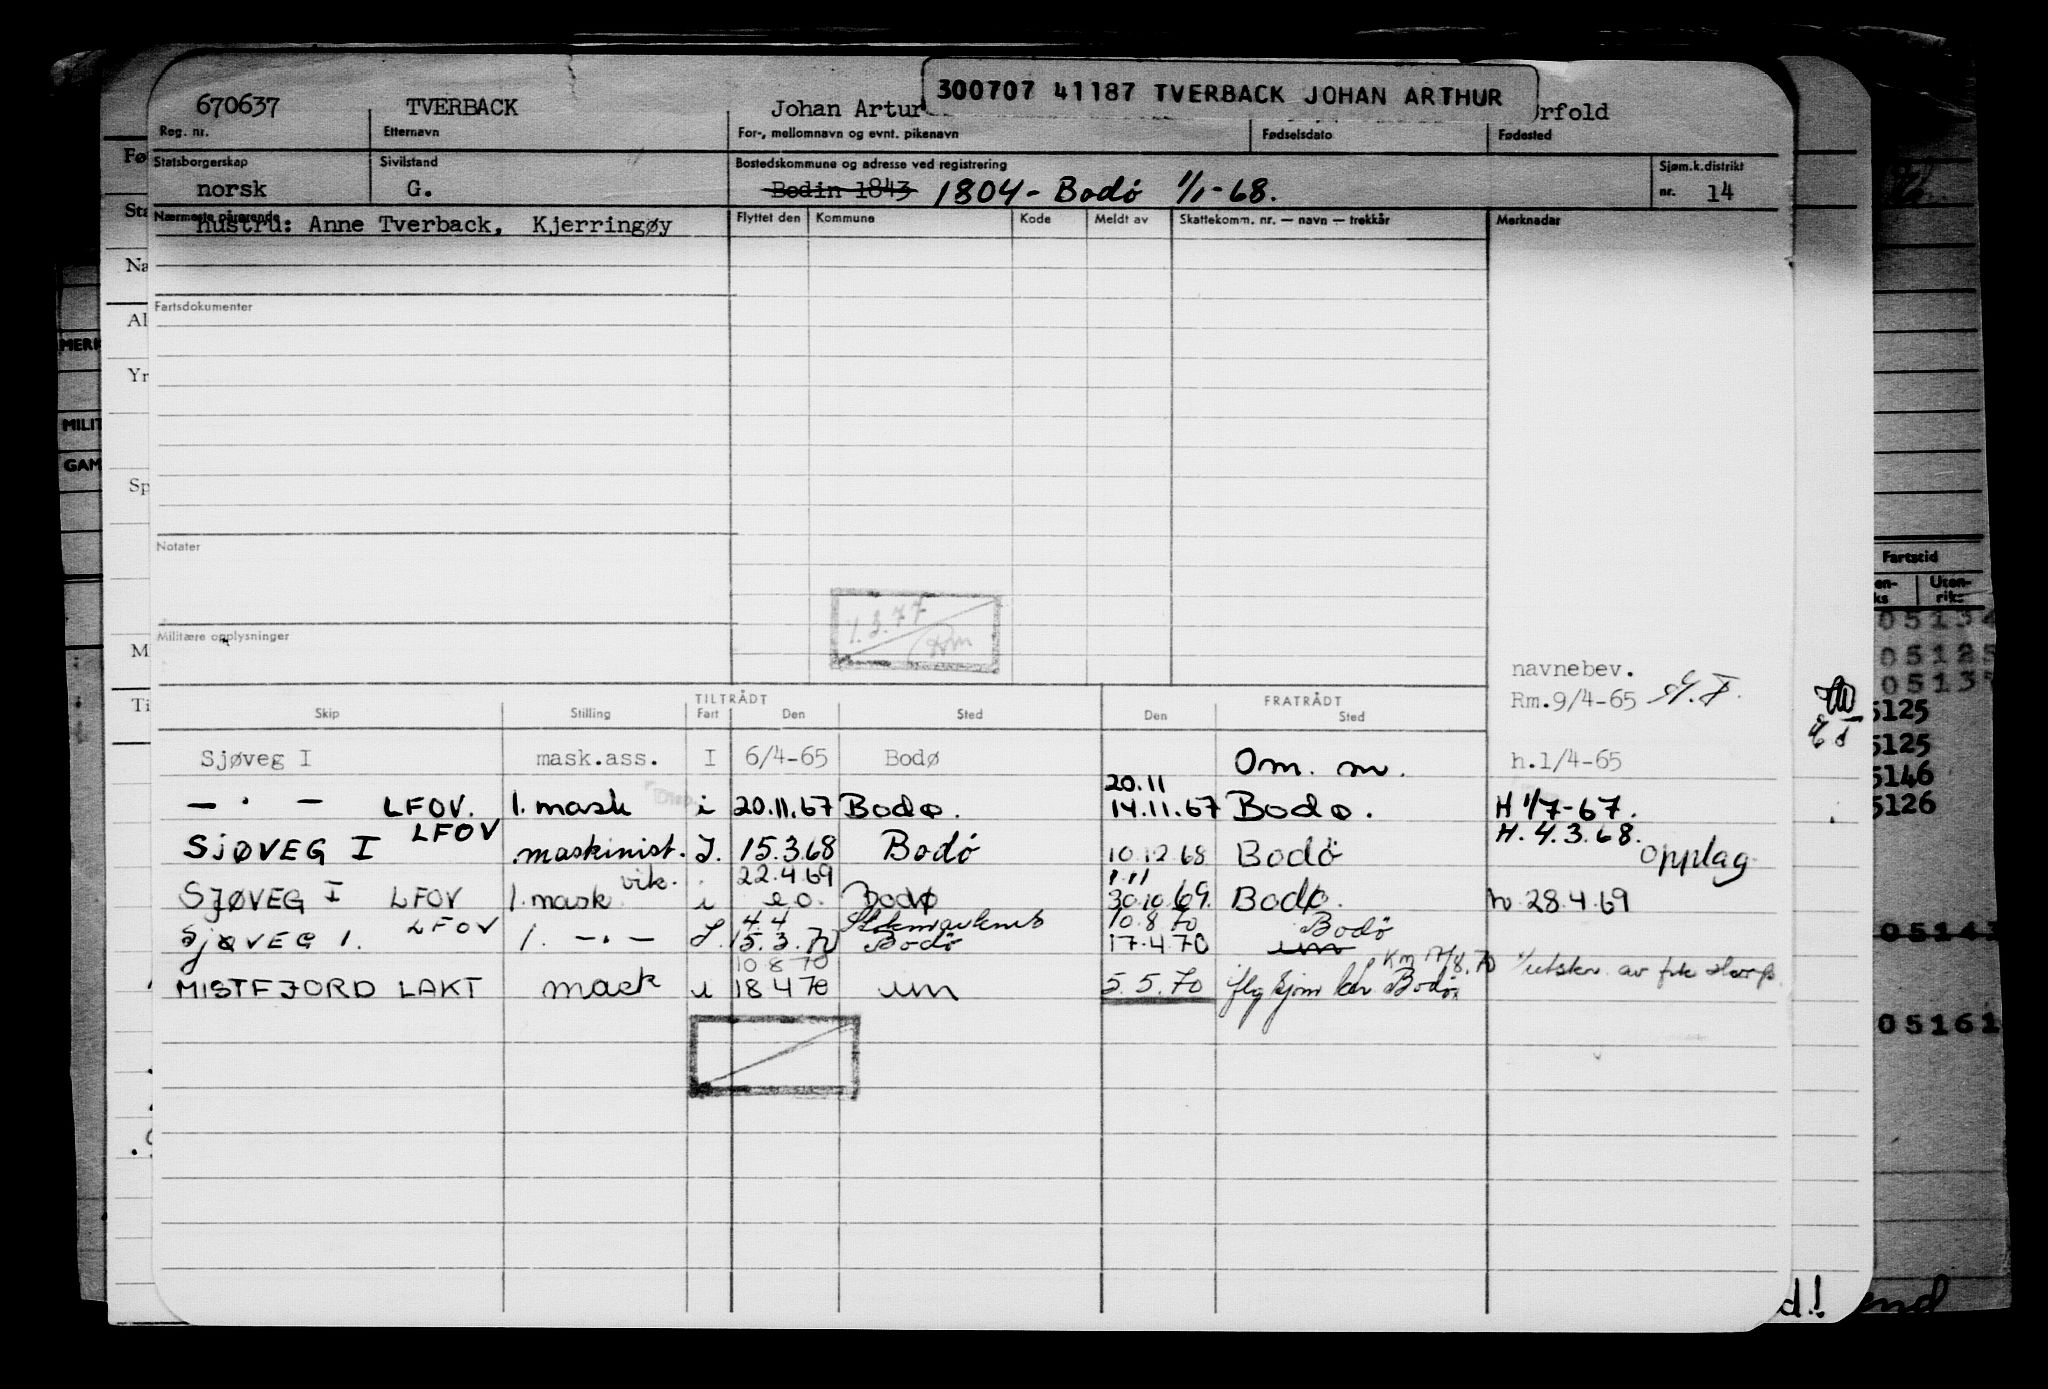 300707 41187 TVERBACK JOHAN ARTHUR
670637 TVERBACK Johan Artur rfold
Reg. nr. Etternavn For-, mellomnavn og evnt. pikenavn Fødselsdato Fødested
Statsborgerskap Sivilstand Bostedskommune og adresse ved registrering Sjøm.k.distrikt
norsk G. Bodin 1843 1804 - Bodø 1/1-68. nr. 14
Nærmeste pårørende Flyttet den Kommune Kode Meldt av Skattekomm. nr. — navn — trekkår Merknader
hustru: Anne Tverback, Kjerringøy
Fartsdokumenter
Notater
1.3.77
Militære opplysninger
navnebev.
Rm.9/4-65
TILTRÅDT FRATRÅDT
Skip Stilling Fart Den Sted Den Sted
Sjøveg I mask.ass. I 6/4-65 Bodø Om. m. h.1/4-65
20.11
— " — LFOV. 1. mask i 20.11.67 Bodø. 14.11.67 Bodø. H 1/7-67.
SJØVEG I LFOV maskinist. I. 15.3.68 Bodø 10.12.68 Bodø H. 4.3.68. Opplag
vik. 22.4.69 1.11
SJØVEG I LFOV 1. mask i e.o. Bodø 30.10.69. Bodø. h 28.4.69
LFOV 4.4 10.8.70 Bodø
SJØVEG 1. 1. — " — I. 15.3.70 Bodø 17.4.70 um
10.8.70 Km 17/8.70
MISTFJORD LAKT mask i 18.4.70 um 5.5.70 Bodø
Fø
Sta
Na
Al
MERK
Yr
MILIT
GAM
Sp
M
Ti
Fartstid
Uten-
riks
05134
05125
05137
5125
5125
5146
5126
05143
05161
d! end